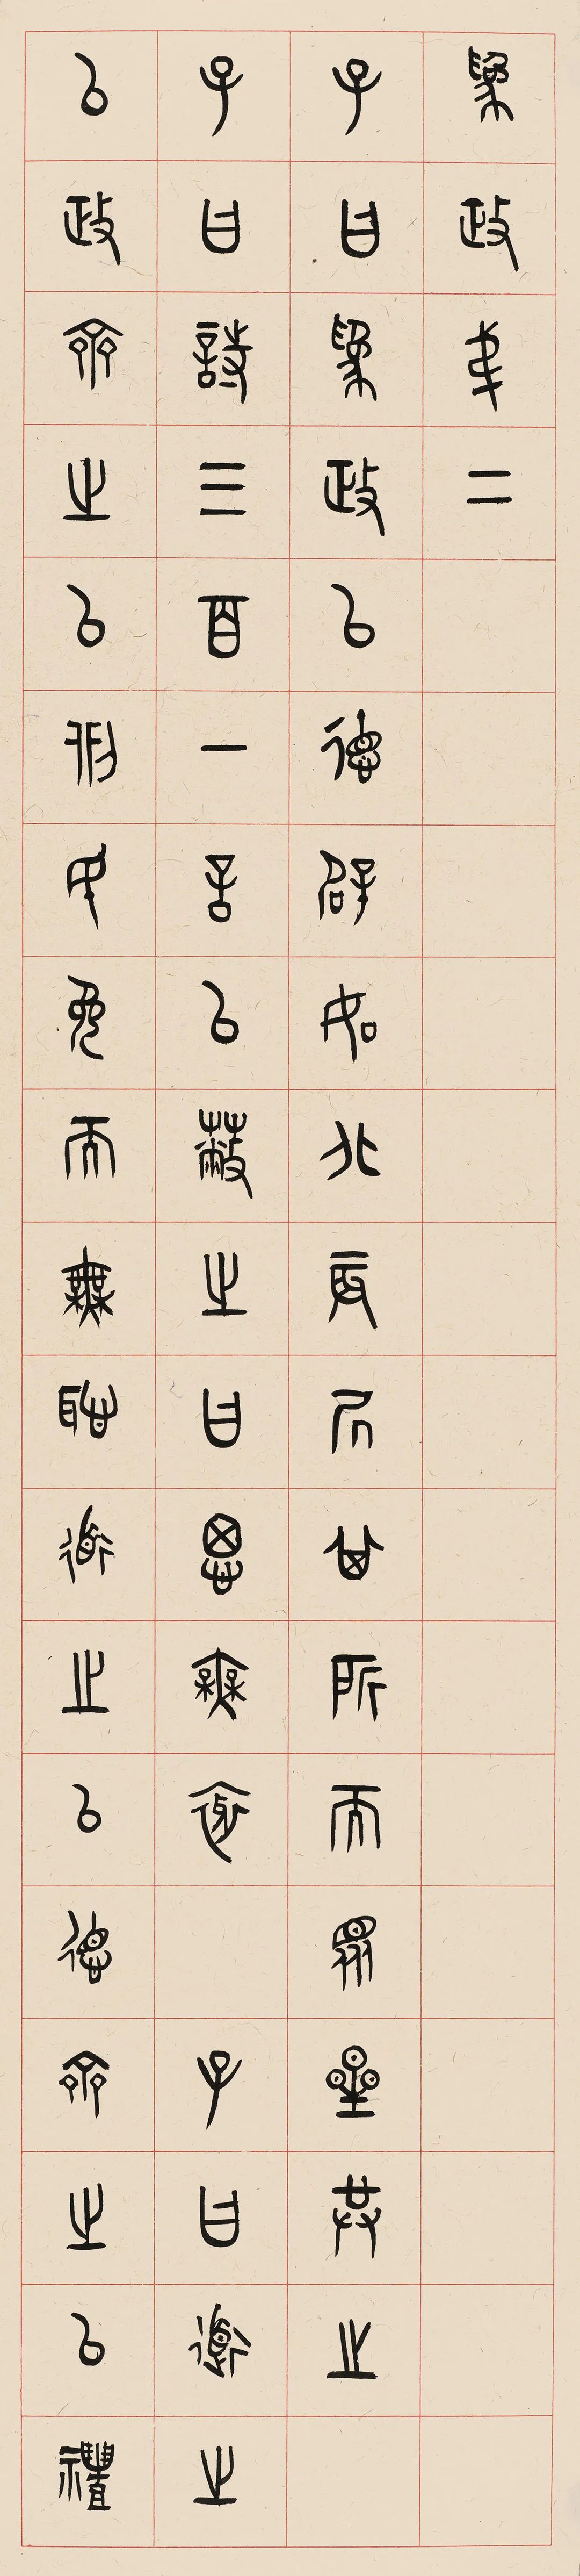 為政弟二
子曰為政以德辟如北辰居其所而眾星共之
子曰詩三百一言以蔽之曰思無邪 子曰道之
以政齊之以刑民免而無恥道之以德齊之以禮